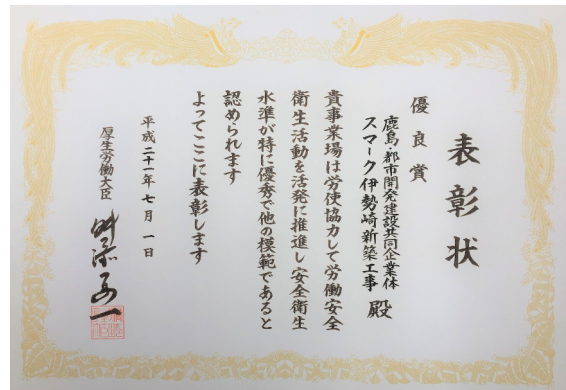 表彰状
優良賞
鹿島・都市開発建設共同企業体
スマーク伊勢崎新築工事 殿
貴事業場は労使協力して労働安全
衛生活動を活発に推進し安全衛生
水準が特に優秀で他の模範であると
認められます
よってここに表彰します
平成二十一年七月一日
厚生労働大臣
舛添要一